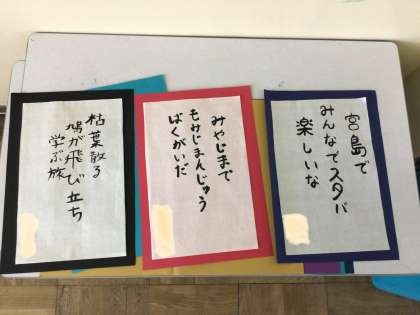 宮島で
みんなでスタバ
楽しいな
みやじまで
もみじまんじゅう
ばくがいだ
枯葉散る
鳩が飛び立ち
学ぶ旅